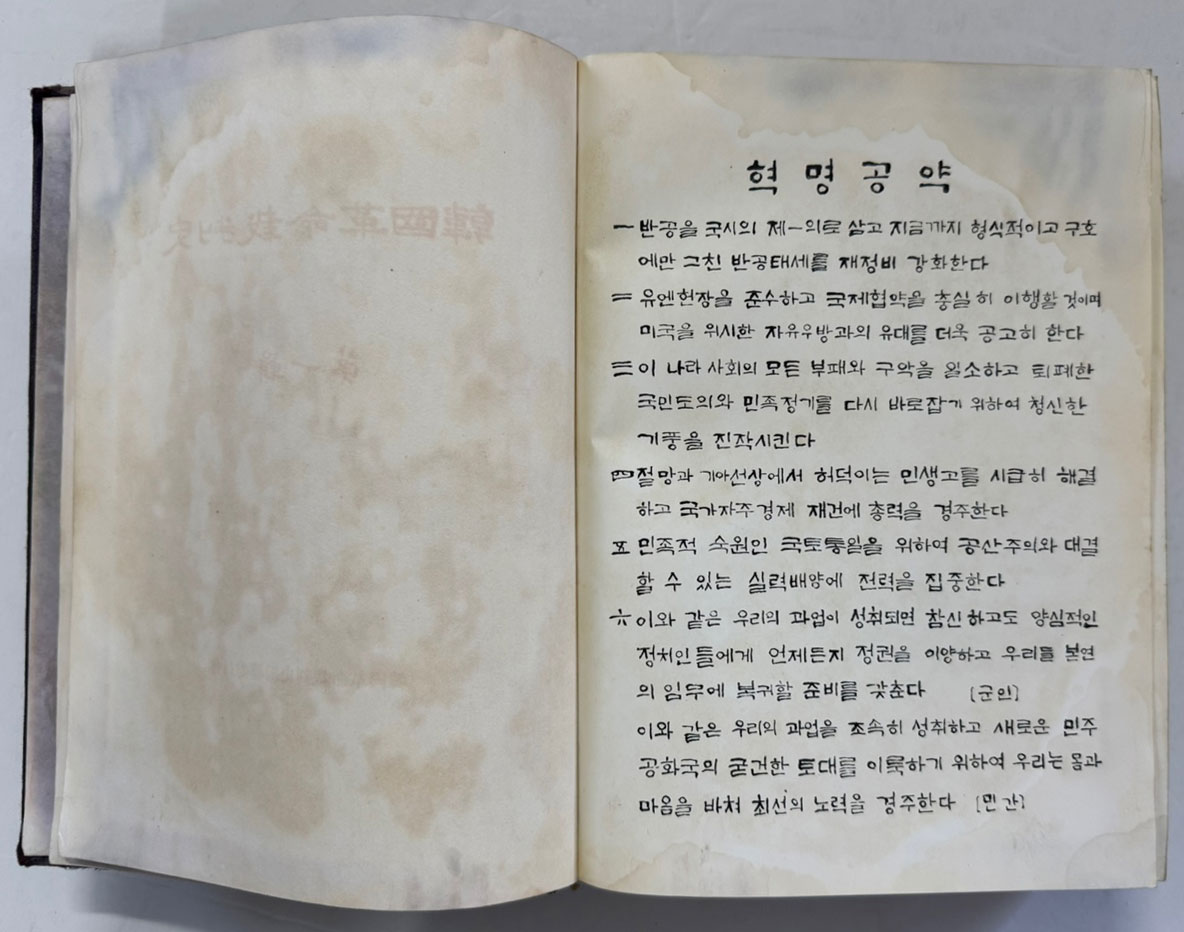 혁명공약
一 반공을 국시의 제一의로 삼고 지금까지 형식적이고 구호
에만 그친 반공태세를 재정비 강화한다
二 유엔헌장을 준수하고 국제협약을 충실히 이행할 것이며
미국을 위시한 자유우방과의 유대를 더욱 공고히 한다
三 이 나라 사회의 모든 부패와 구악을 일소하고 퇴폐한
국민도의와 민족정기를 다시 바로잡기 위하여 청신한
기풍을 진작시킨다
四 절망과 기아선상에서 허덕이는 민생고를 시급히 해결
하고 국가자주경제 재건에 총력을 경주한다
五 민족적 숙원인 국토통일을 위하여 공산주의와 대결
할 수 있는 실력배양에 전력을 집중한다
六 이와 같은 우리의 과업이 성취되면 참신하고도 양심적인
정치인들에게 언제든지 정권을 이양하고 우리들 본연
의 임무에 복귀할 준비를 갖춘다 [군인]
이와 같은 우리의 과업을 조속히 성취하고 새로운 민주
공화국의 굳건한 토대를 이룩하기 위하여 우리는 몸과
마음을 바쳐 최선의 노력을 경주한다 [민간]
韓國革命裁判史